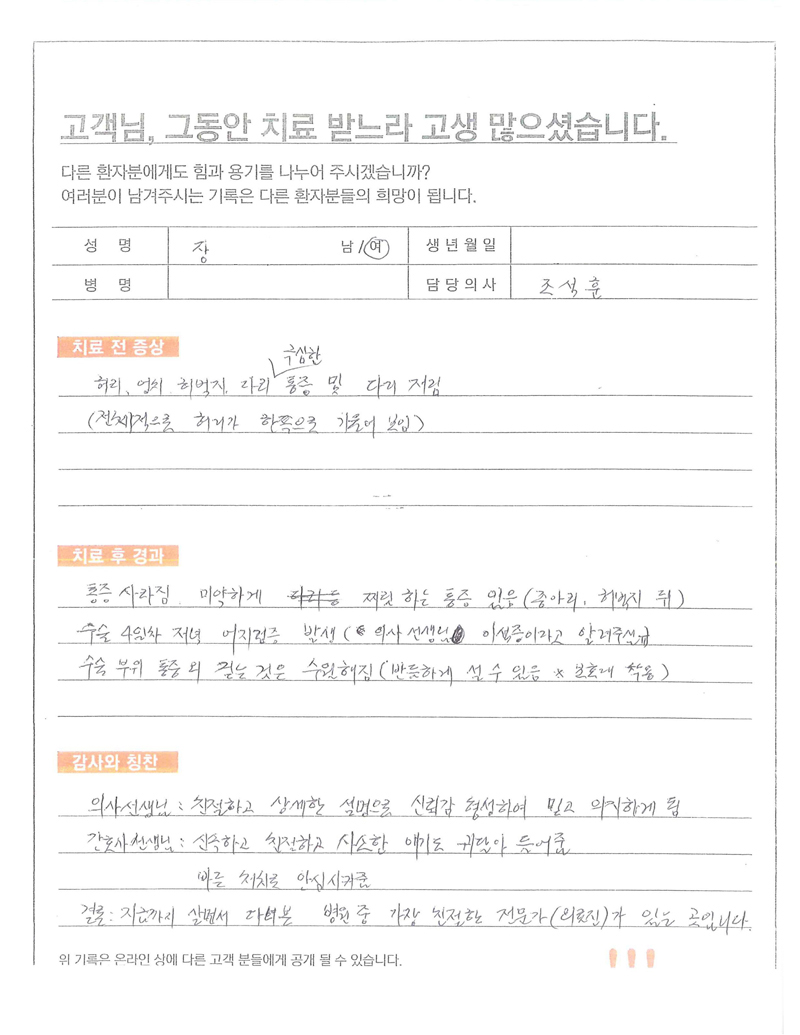 고객님, 그동안 치료 받느라 고생 많으셨습니다.
다른 환자분에게도 힘과 용기를 나누어 주시겠습니까?
여러분이 남겨주시는 기록은 다른 환자분들의 희망이 됩니다.
성 명 장 남/여 생년월일
병 명 담당의사 조석훈
치료 전 증상
극심한
허리, 엉치, 허벅지, 다리 통증 및 다리 저림
(전체적으로 허리가 한쪽으로 기울어 보임)
치료 후 경과
통증 사라짐. 미약하게 찌릿 하는 통증 있음(종아리, 허벅지 뒤)
수술 4일차 저녁 어지럼증 발생( 의사 선생님 이석증이라고 알려주심
수술 부위 통증 외 걷는 것은 수월해짐(반듯하게 설 수 있음 * 보호대 착용)
감사와 칭찬
의사선생님 : 친절하고 상세한 설명으로 신뢰감 형성하여 믿고 의지하게 됨
간호사선생님 : 신속하고 친절하고 사소한 얘기도 귀담아 들어줌
빠른 처치로 안심시켜줌
결론 : 지금까지 살면서 다녀본 병원 중 가장 친절한 전문가(의료진)가 있는 곳입니다.
위 기록은 온라인 상에 다른 고객 분들에게 공개 될 수 있습니다.